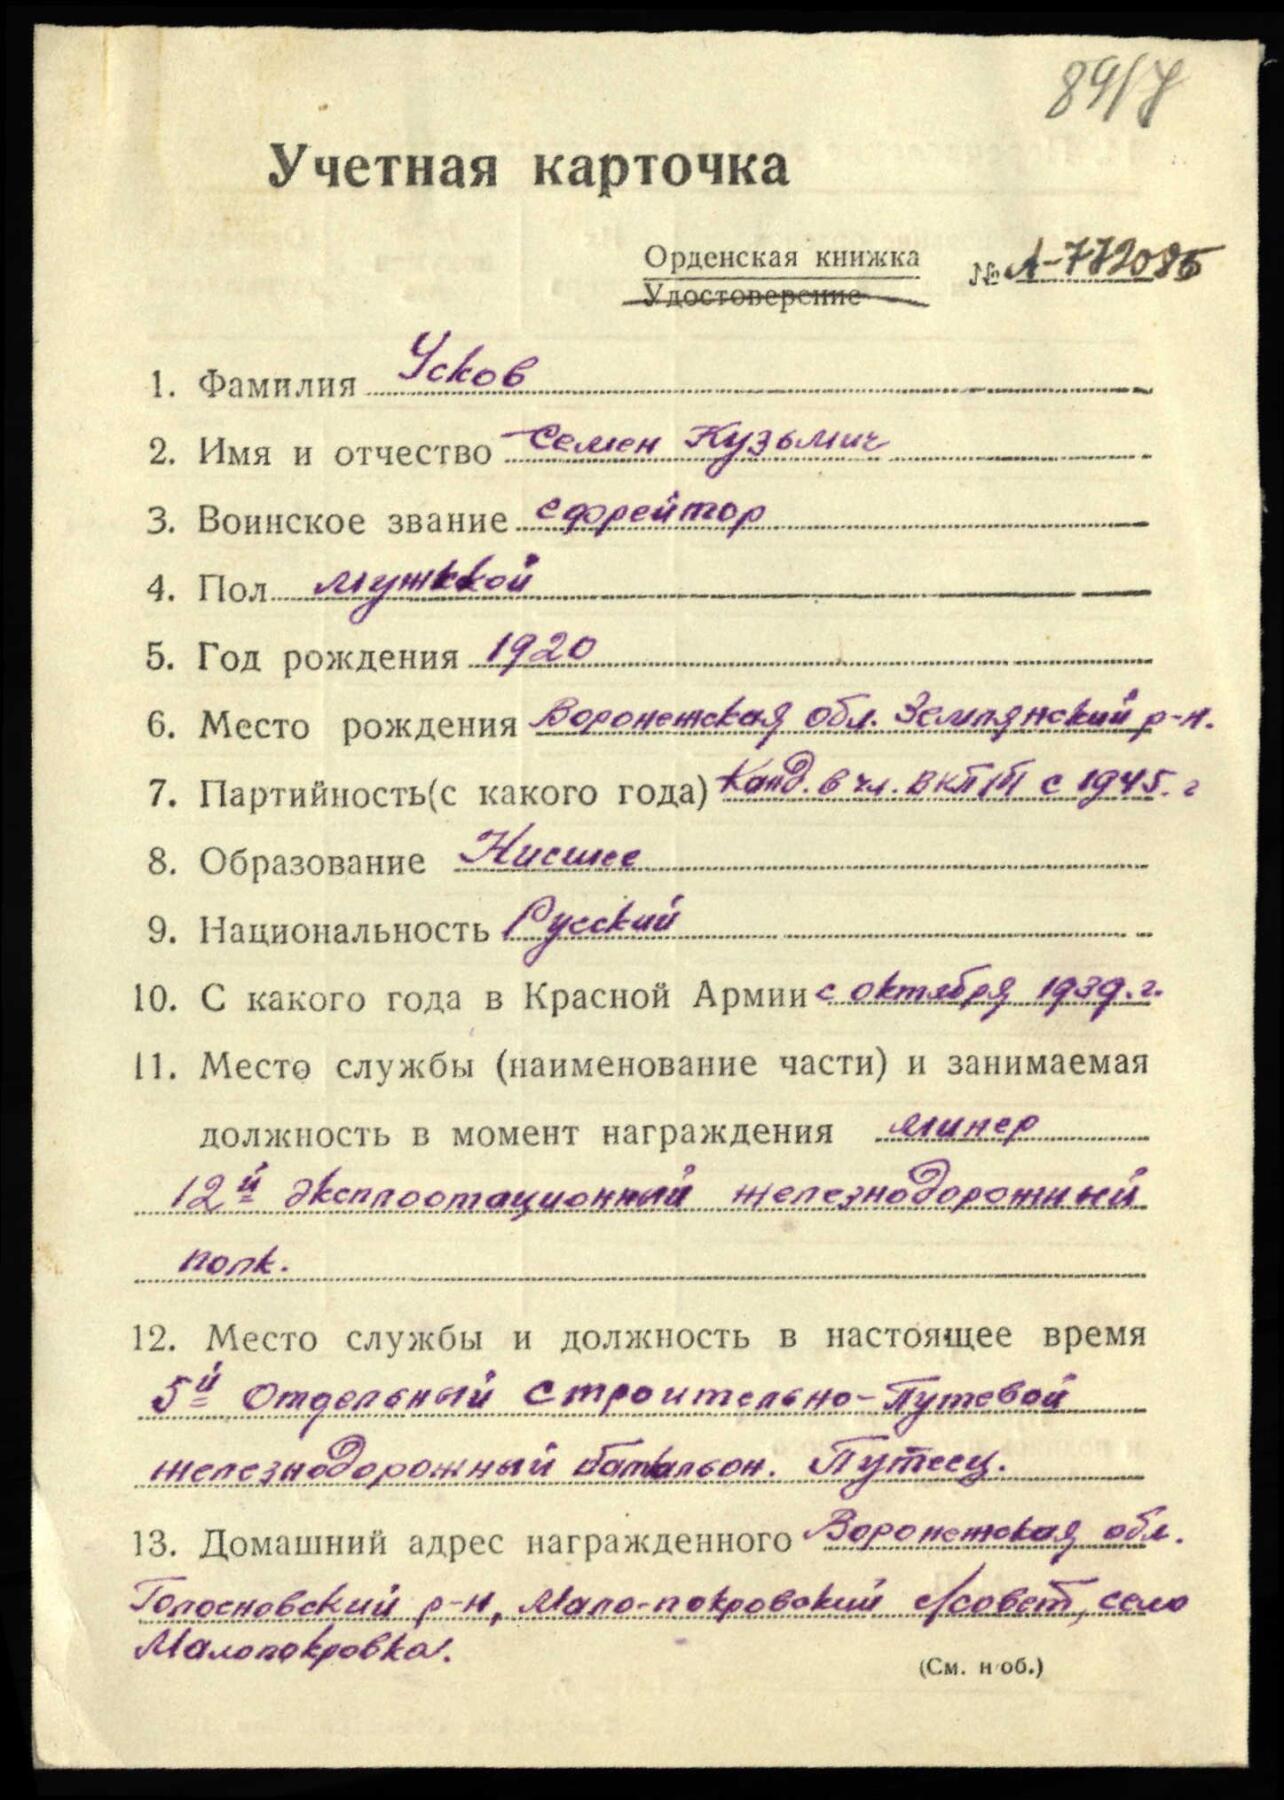 89/7
Учетная карточка
Орденская книжка
Удостоверение
№ А-772085
1. Фамилия Усков
2. Имя и отчество Семен Кузьмич
3. Воинское звание ефрейтор
4. Пол мужской
5. Год рождения 1920
6. Место рождения Воронежская обл. Землянский р-н.
7. Партийность(с какого года) Канд. в чл. ВКП/б/ с 1945. г
8. Образование Нисшее
9. Национальность Русский
10. С какого года в Красной Армии с октября 1939. г.
11. Место службы (наименование части) и занимаемая
должность в момент награждения минер
12й эксплоотационный железнодорожный
полк.
12. Место службы и должность в настоящее время
5й Отдельный строительно-Путевой
железнодорожный батальон. Путеец.
13. Домашний адрес награжденного Воронежская обл.
Голосновский р-н, Мало-покровский с/совет, село
Малопокровка.
(См. н об.)